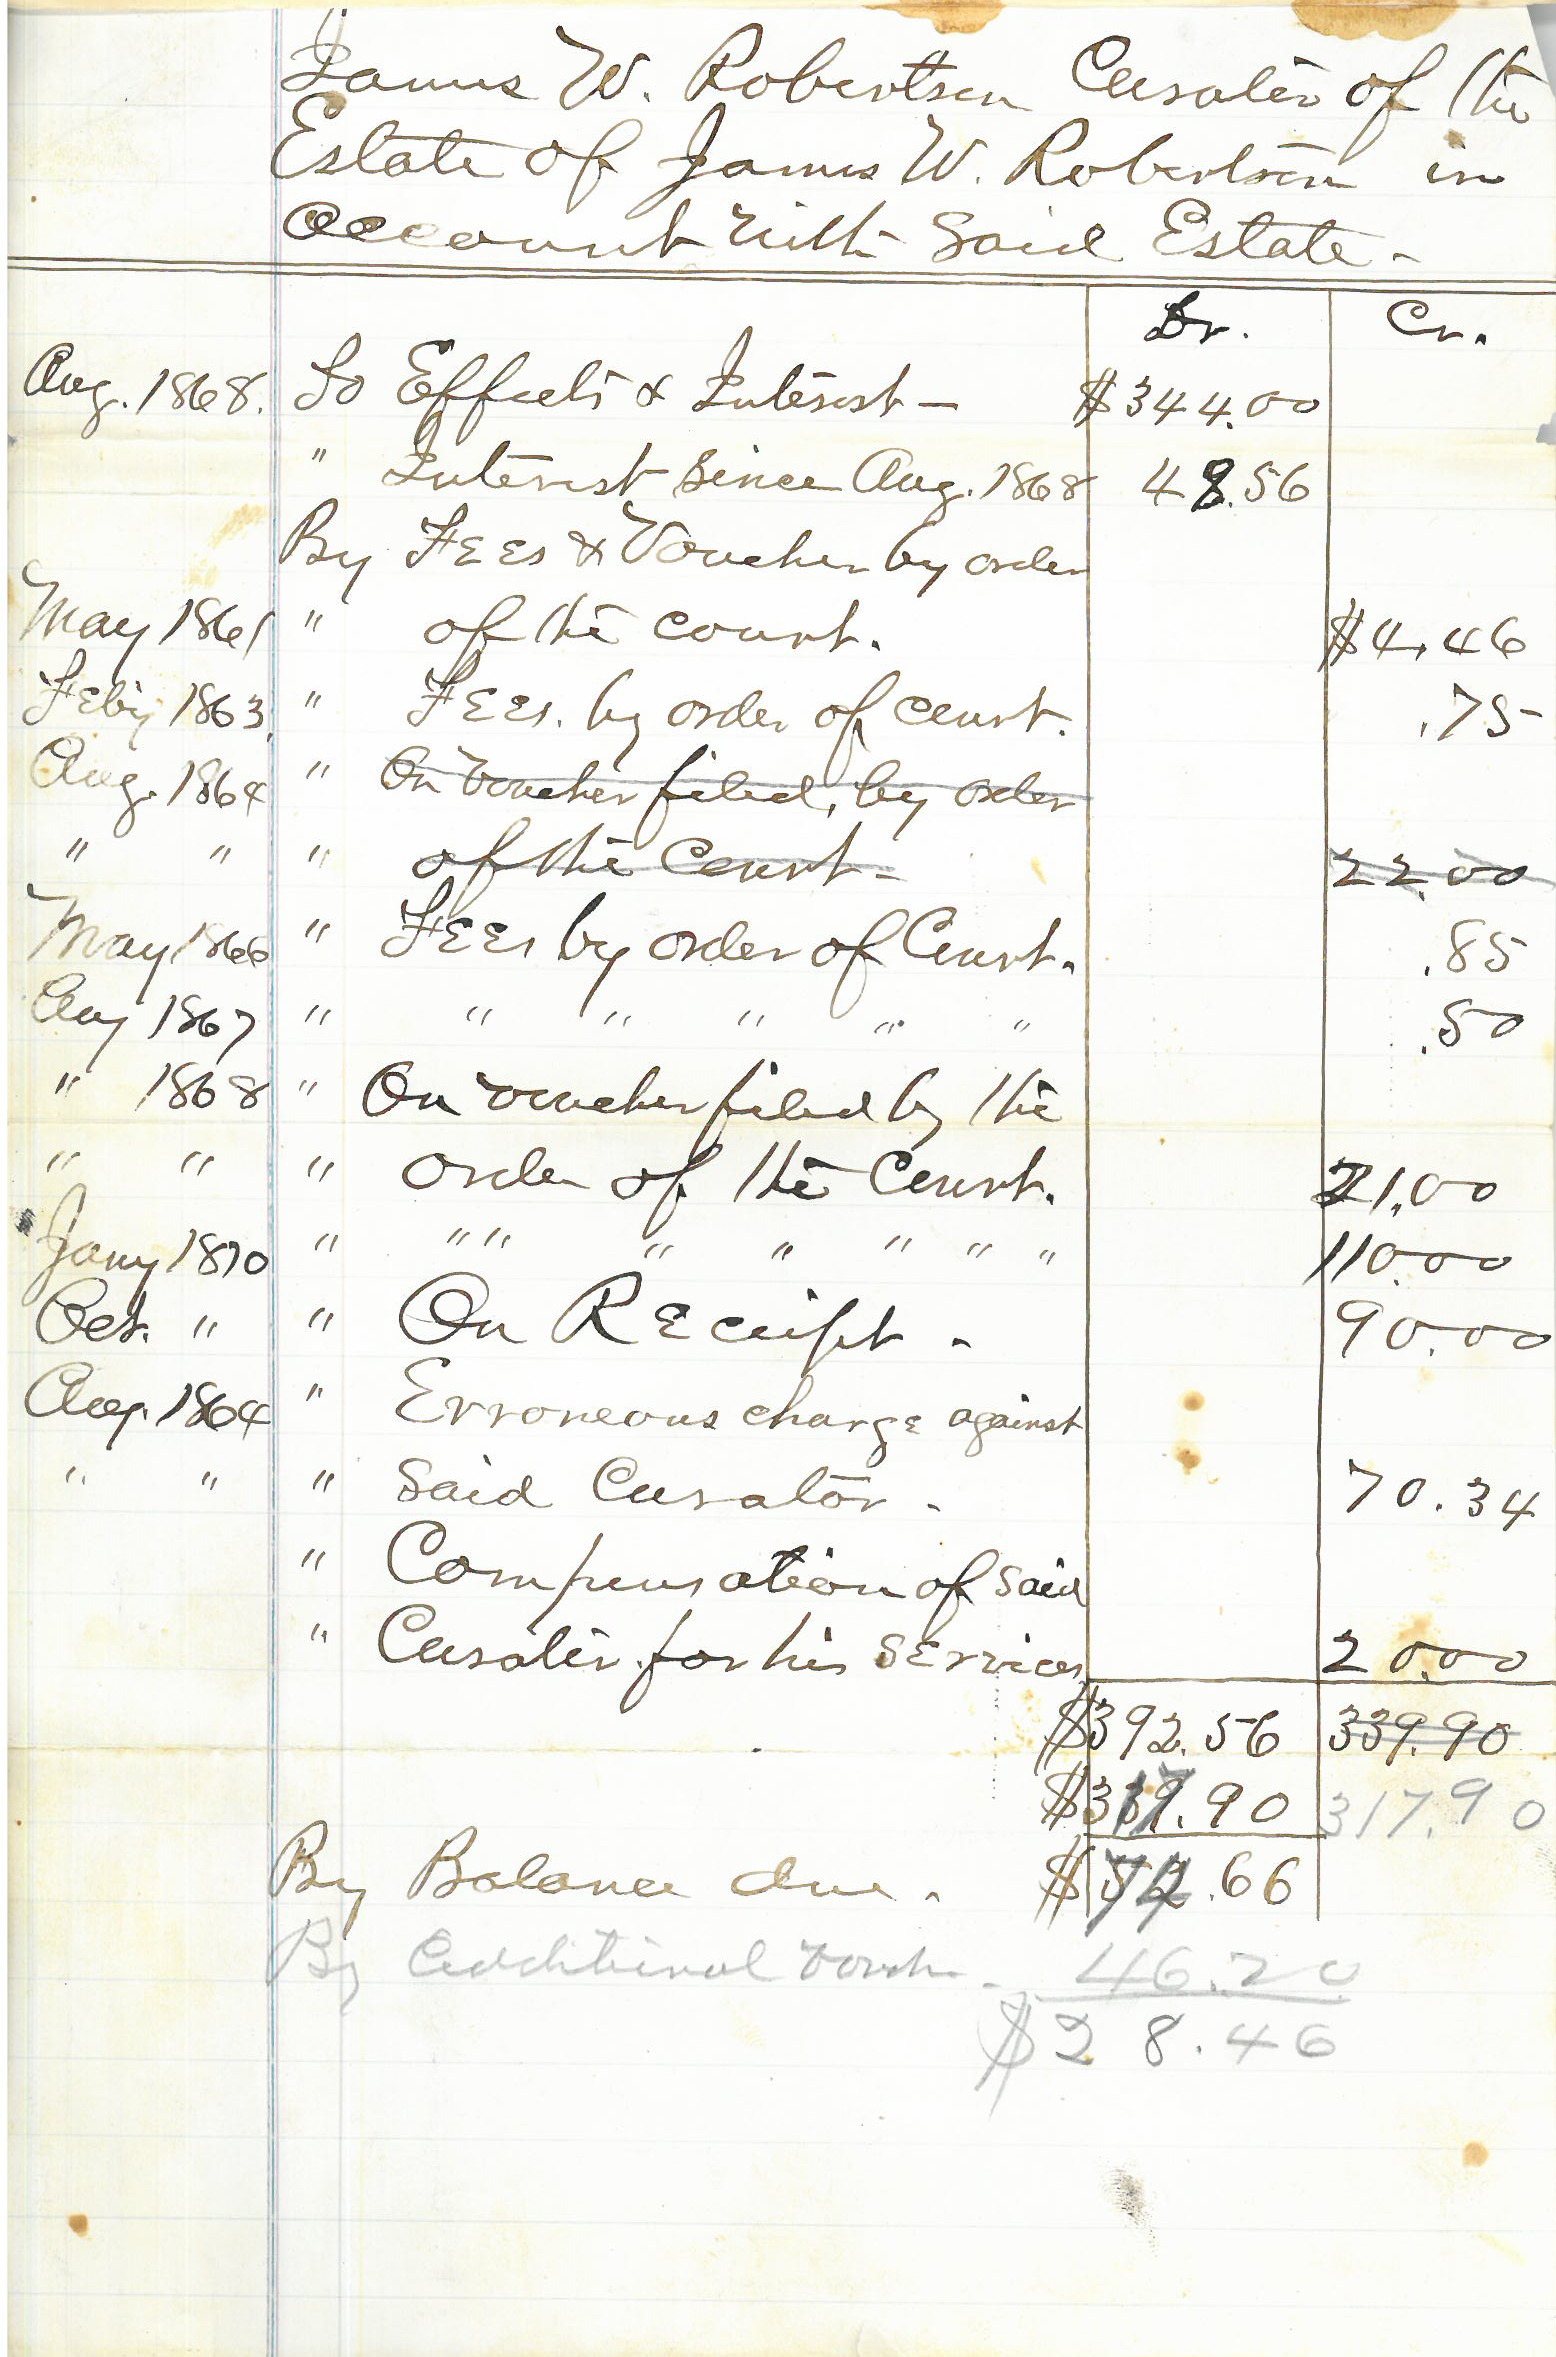 James W. Robertson Curator of the
Estate of James W. Robertson in
account with Said Estate -
Dr. Cr.
Aug. 1868. To Effects & Interest - $344.00
" Interest since Aug. 1868 48.56
By Fees & Voucher by order
May 1861 " of the court. $4.46
Feby 1863. " Fees. by order of court. .75
Aug. 1864 " On voucher filed, by order
" " " of the Court - 22.00
May 1866 " Fees by order of Court. .85
Aug 1867 " " " " " " .50
" 1868 " On voucher filed by the
" " " order of the Court. 21.00
Jany 1870 " " " " " " " " 110.00
Oct. " " On Receipt. 90.00
Aug. 1864 " Erroneous charge against
" " " Said Curator. 70.34
" Compensation of Said
" Curator for his services 20.00
$392.56 339.90
$317.90 317.90
By Balance due. $74.66
By additional vouch - 46.20
$28.46